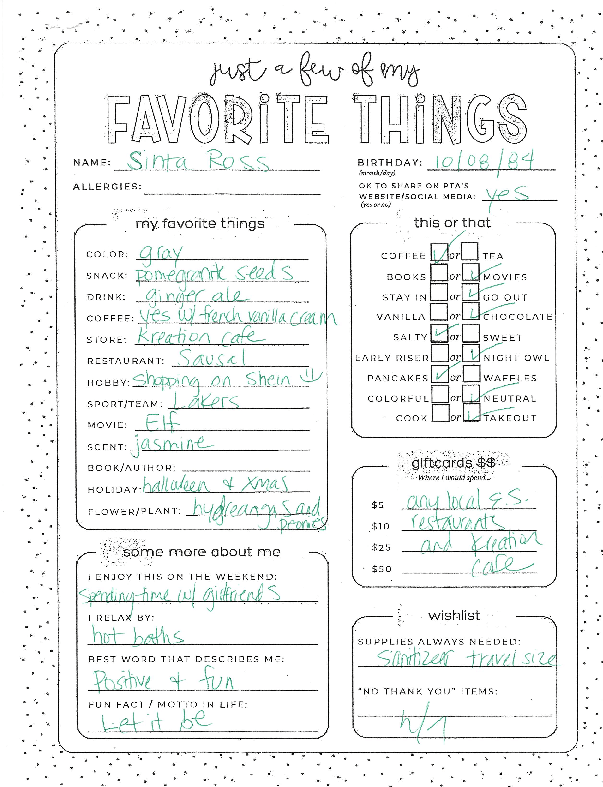 just a few of my
FAVORITE THINGS
NAME: Sinta Ross
BIRTHDAY: 10/08/84
(month/day)
ALLERGIES:
OK TO SHARE ON PTA'S
WEBSITE/SOCIAL MEDIA: yes
(yes or no)
my favorite things
COLOR: gray
SNACK: pomegranite seeds
DRINK: ginger ale
COFFEE: yes w/ french vanilla cream
STORE: Kreation cafe
RESTAURANT: Sausal
HOBBY: Shopping on Shein
SPORT/TEAM: Lakers
MOVIE: Elf
SCENT: jasmine
BOOK/AUTHOR:
HOLIDAY: halloween & Xmas
FLOWER/PLANT: hydreangas and
peonies
this or that
COFFEE or TEA
BOOKS or MOVIES
STAY IN or GO OUT
VANILLA or CHOCOLATE
SALTY or SWEET
EARLY RISER or NIGHT OWL
PANCAKES or WAFFLES
COLORFUL or NEUTRAL
COOK or TAKEOUT
giftcards $$
Where I would spend...
$5 any local E.S.
$10 restaurants
$25 and Kreation
$50 cafe
some more about me
I ENJOY THIS ON THE WEEKEND:
spending time w/ girlfriends
I RELAX BY:
hot baths
BEST WORD THAT DESCRIBES ME:
Positive & fun
FUN FACT / MOTTO IN LIFE:
Let it be
wishlist
SUPPLIES ALWAYS NEEDED:
Sanitizer travel size
"NO THANK YOU" ITEMS: